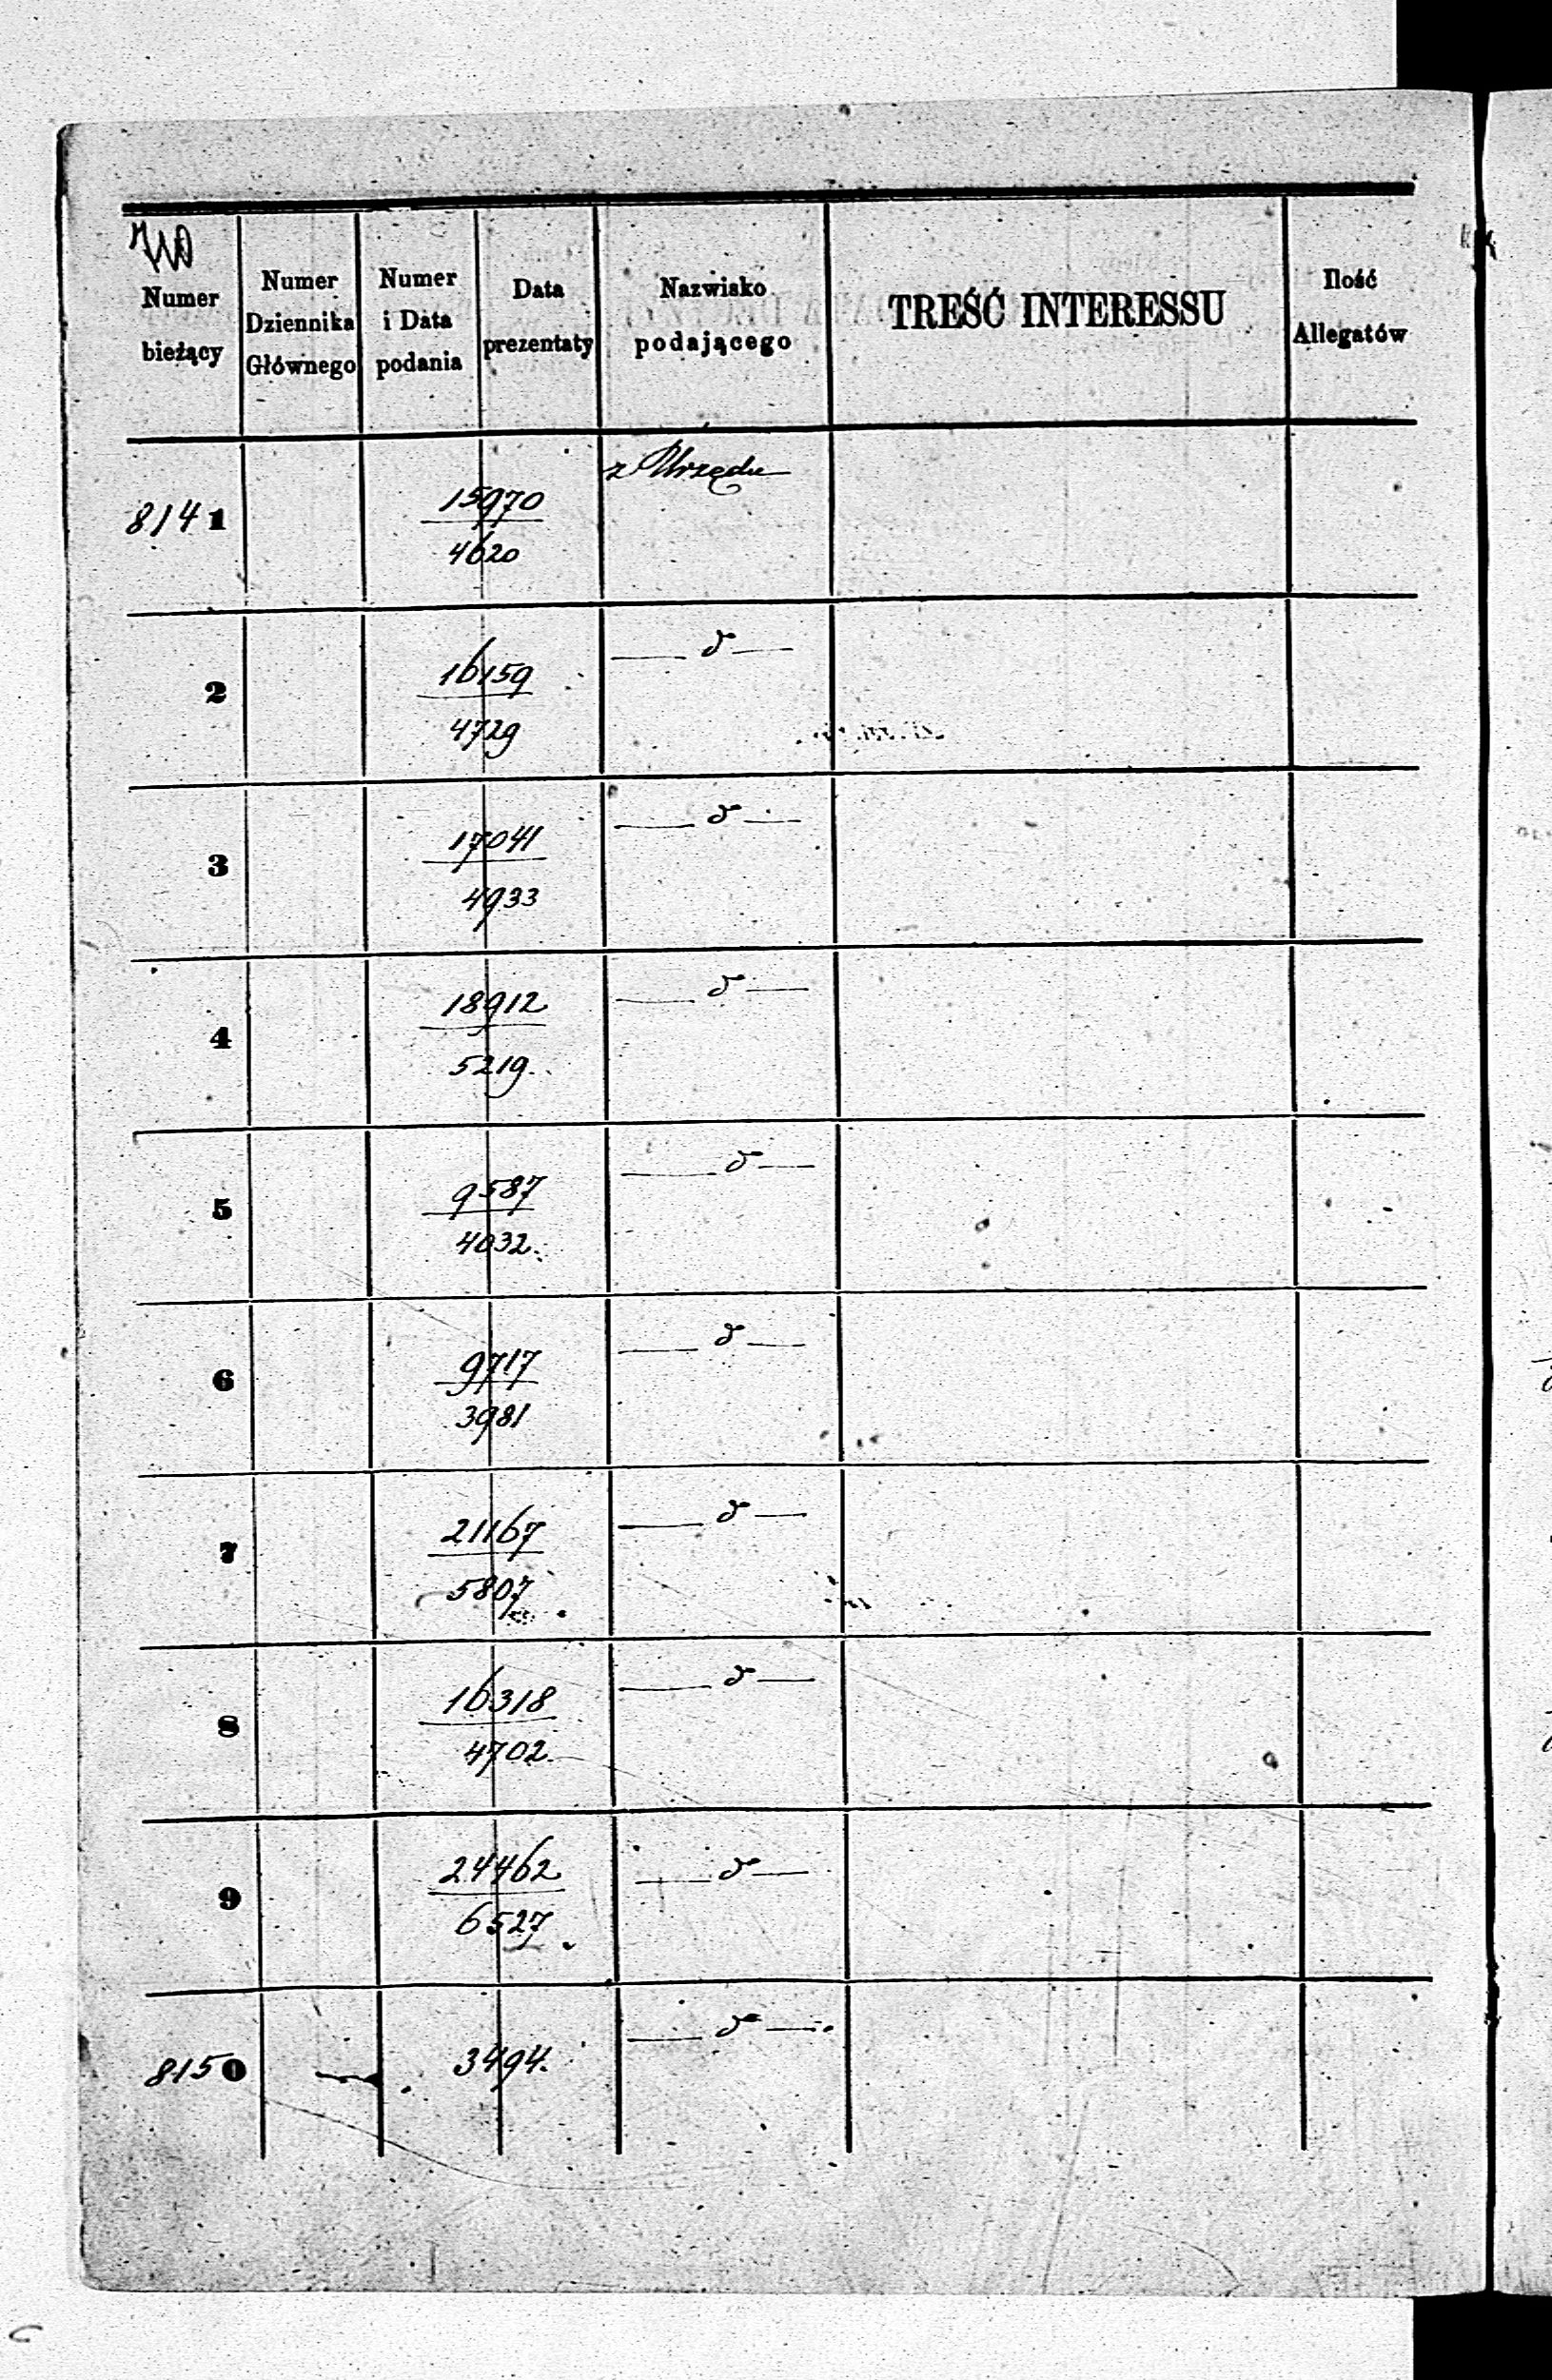 Numer bieżący
Numer Dziennika Głównego
Numer i Data podania
Data prezentaty
Nazwisko podającego
TREŚĆ INTERESSU
Ilość Allegatów
8141 15970 z Urzędu
4620
2 16159 — d —
4729
3 17041 — d —
4933
4 18912 — d —
5219.
5 9587 — d —
4032.
6 9717 — d —
3981
7 21167 — d —
5807
8 16318 — d —
4702.
9 24462 — d —
6527.
8150 3494. — d —